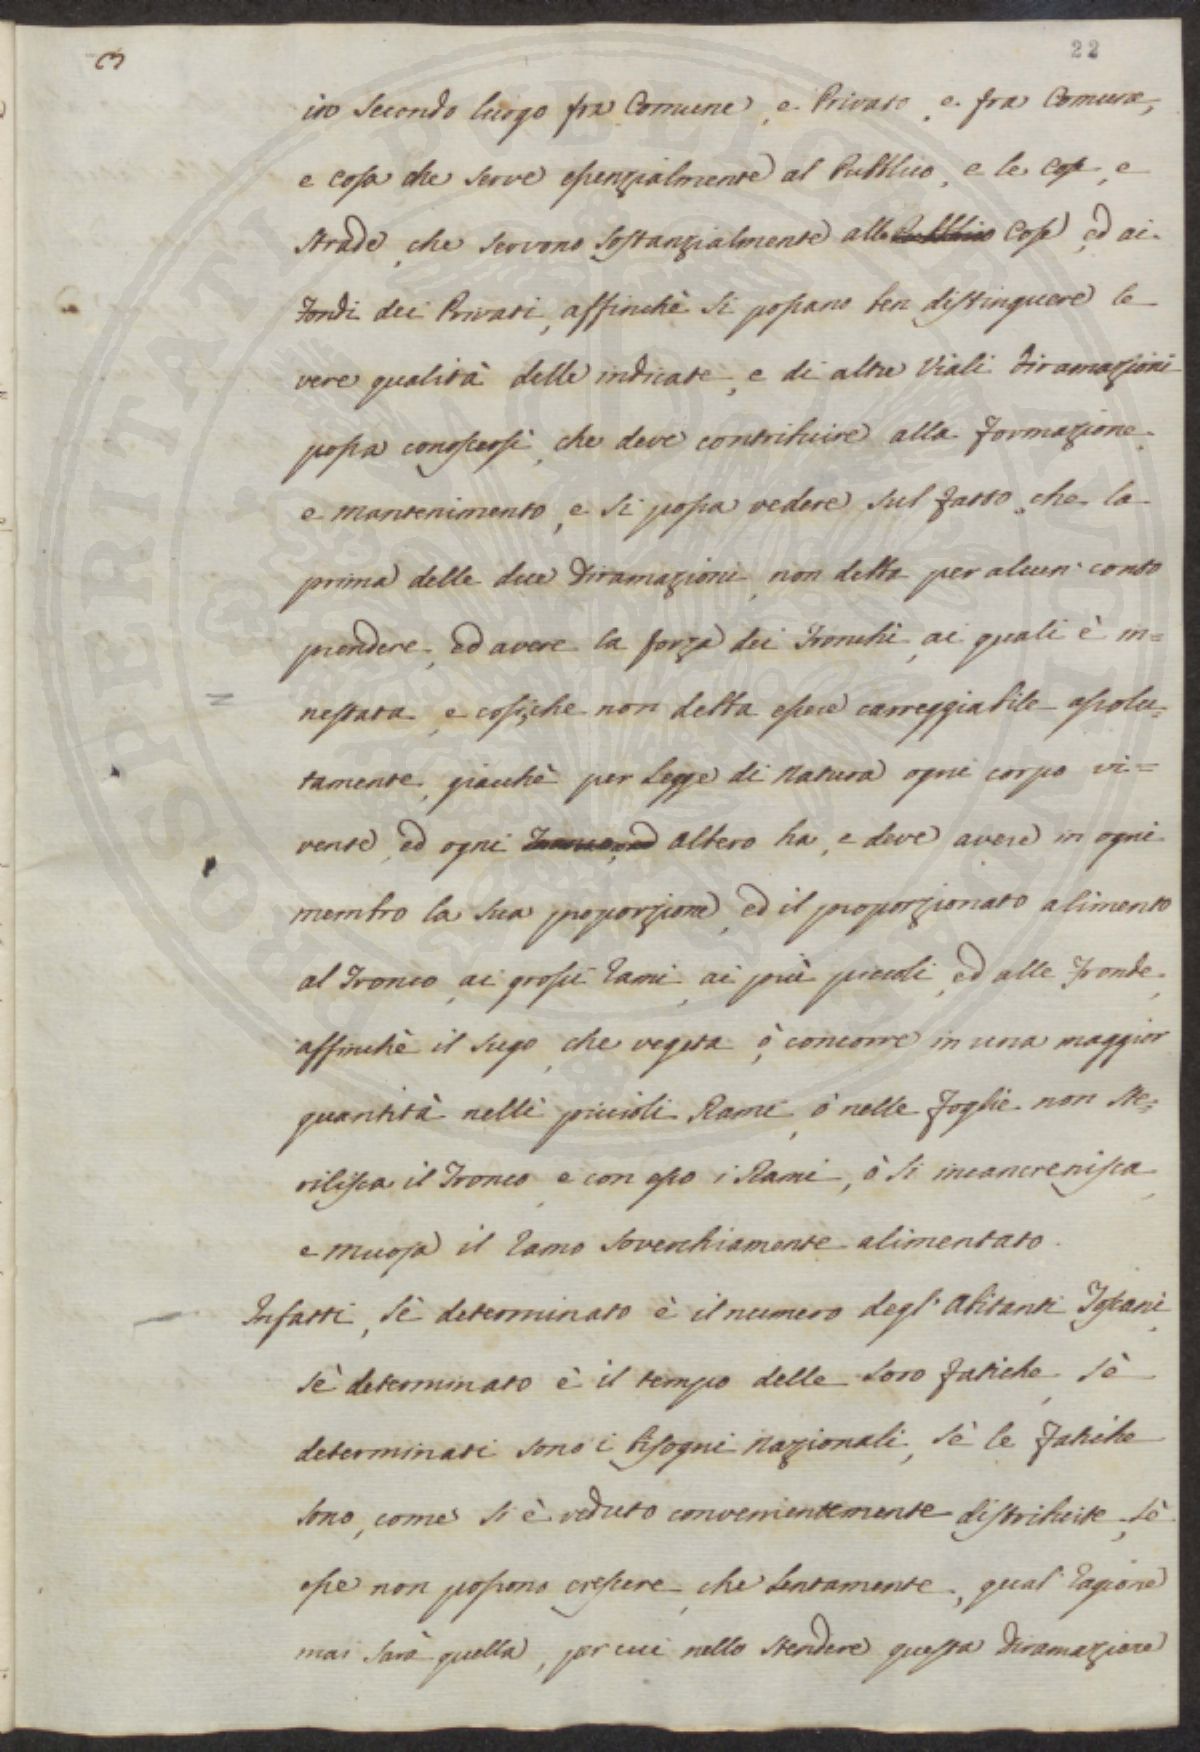 3
22
in secondo luogo fra Comune, e Privato, e fra Comune,
e cosa che serve essenzialmente al Pubblico, e le Cose, e
strade, che servono sostanzialmente alle Cose, ed ai
Fondi dei Privati, affinchè si possano ben distinguere le
vere qualità delle indicate, e di altre Viali Diramazioni
possa conoscersi, che deve contribuire alla formazione,
e mantenimento, e si possa vedere sul fatto, che la
prima delle due Diramazioni, non debba per alcun conto
prendere, ed avere la forza dei Tronchi, ai quali è in=
nestata, e cosicche non debba essere carreggiabile assolu=
tamente, giacchè per Legge di Natura ogni corpo vi=
vente, ed ogni Albero ha, e deve avere in ogni
membro la sua proporzione, ed il proporzionato alimento
al Tronco, ai grossi Rami, ai più piccoli, ed alle Fronde,
affinchè il sugo, che vegeta ò concorre in una maggior
quantità nelli piccioli Rami, ò nelle Foglie non ste=
rilisca il Tronco, e con esso i Rami, ò si incancrenisca,
e muoja il Ramo soverchiamente alimentato.
Infatti, sè determinato è il numero degl' Abitanti
sè determinato è il tempo delle loro fatiche, sè
determinati sono i bisogni nazionali, sè le fatiche
sono, come si è veduto convenientemente distribuite, sè
esse non possono crescere, che lentamente, qual ragione
mai sarà quella, per cui nello stendere questa Diramazione